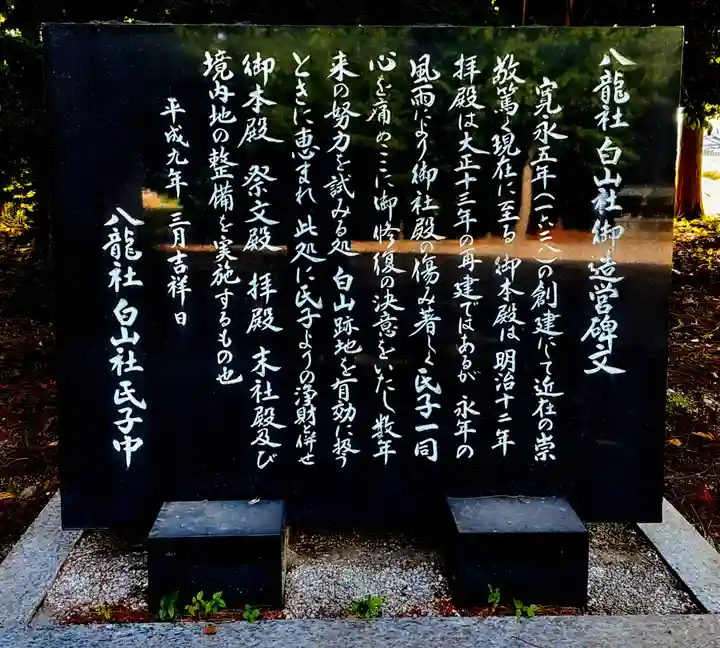 八龍社白山社御造営碑文
寛永五年(一六二八)の創建にして近在の崇
敬篤く現在に至る 御本殿は明治十二年
拝殿は大正十三年の再建ではあるが 永年の
風雨により御社殿の傷み著しく氏子一同
心を痛めここに御修復の決意をいたし数年
来の努力を試みる処 白山跡地を有効に
ときに恵まれ 此処に氏子ようの浄財併せ
御本殿 祭文殿 拝殿 末社殿及び
境内地の整備を実施するもの也
平成九年 三月吉祥日
八龍社 白山社 氏子中